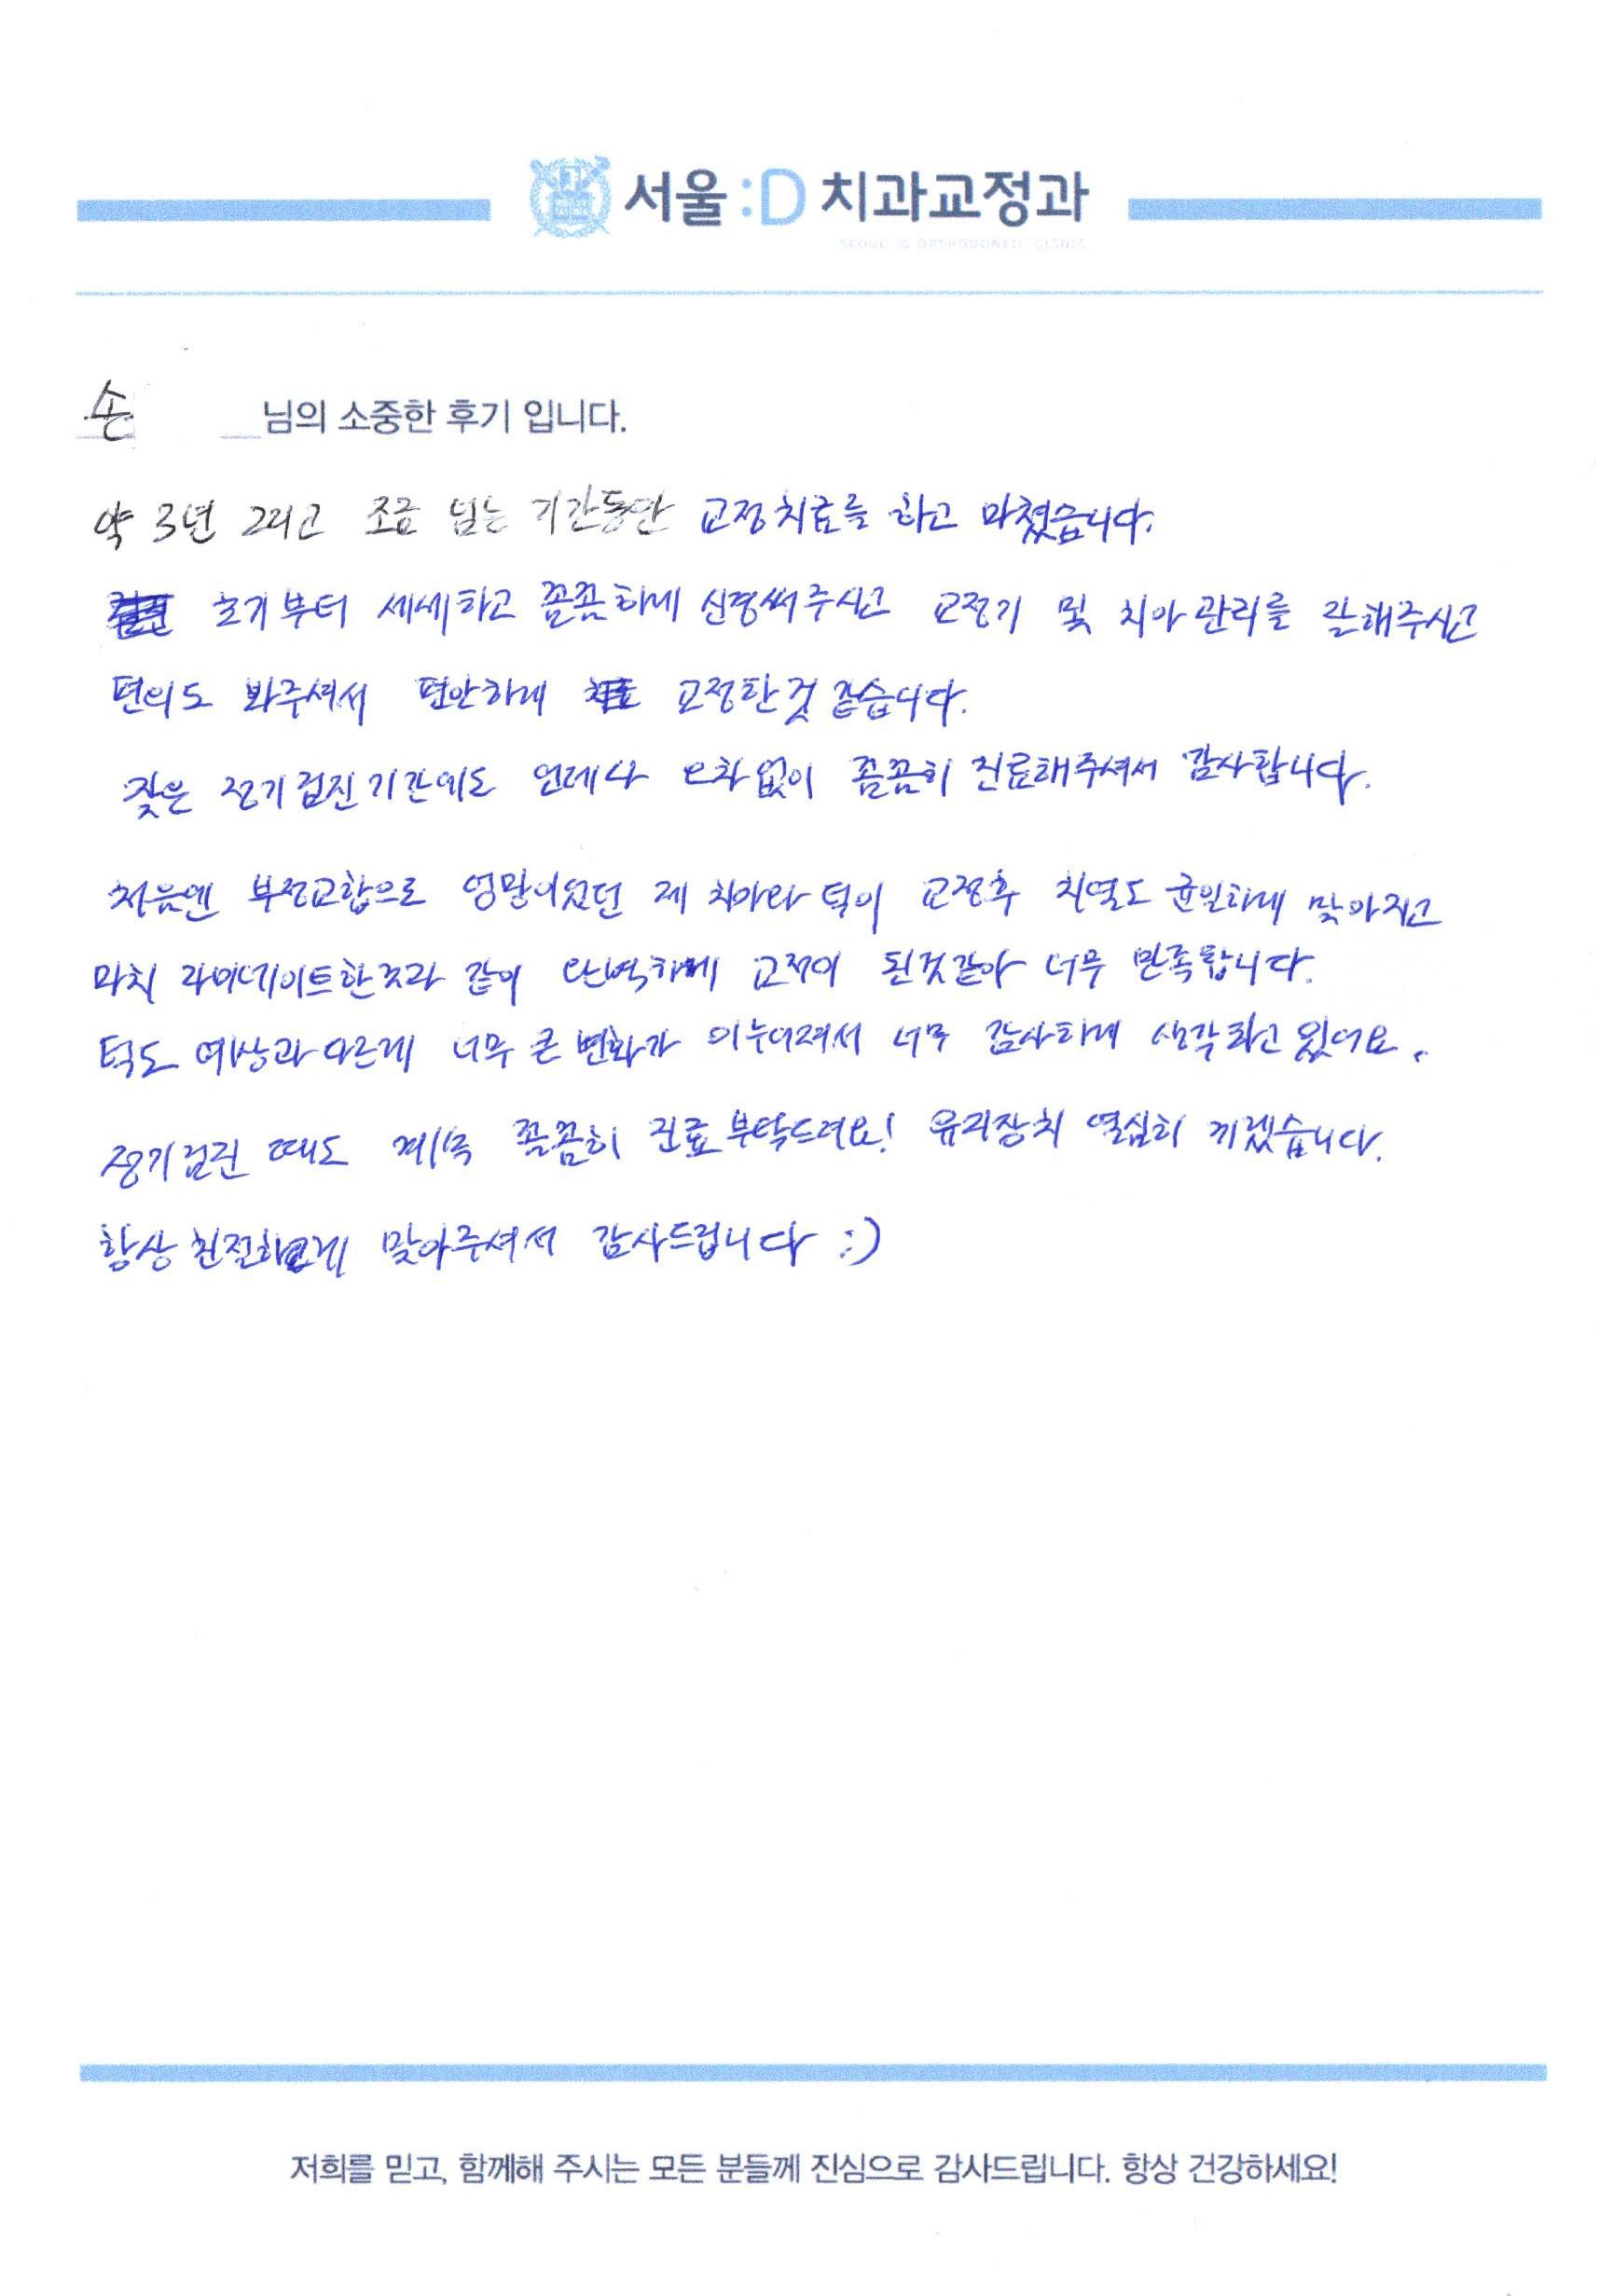 서울:D 치과교정과
SEOUL :D ORTHODONTIC CLINIC
손 님의 소중한 후기 입니다.
약 3년 그리고 조금 넘는 기간동안 교정치료를 하고 마쳤습니다.
초기부터 세세하고 꼼꼼하게 신경써주시고 교정기 및 치아관리를 잘해주시고
편의도 봐주셔서 편안하게 교정한것 같습니다.
잦은 정기검진기간에도 언제나 오차없이 꼼꼼히 진료해주셔서 감사합니다.
처음엔 부정교합으로 엉망이었던 제 치아와 턱이 교정후 치열도 균일하게 맞아지고
마치 라미네이트한것과 같이 완벽하게 교정이 된것같아 너무 만족합니다.
턱도 예상과 다르게 너무 큰 변화가 이루어져서 너무 감사하게 생각하고 있어요.
정기검진 때도 계속 꼼꼼히 진료 부탁드려요! 유지장치 열심히 끼겠습니다.
항상 친절하게 맞아주셔서 감사드립니다 :)
저희를 믿고, 함께해 주시는 모든 분들께 진심으로 감사드립니다. 항상 건강하세요!